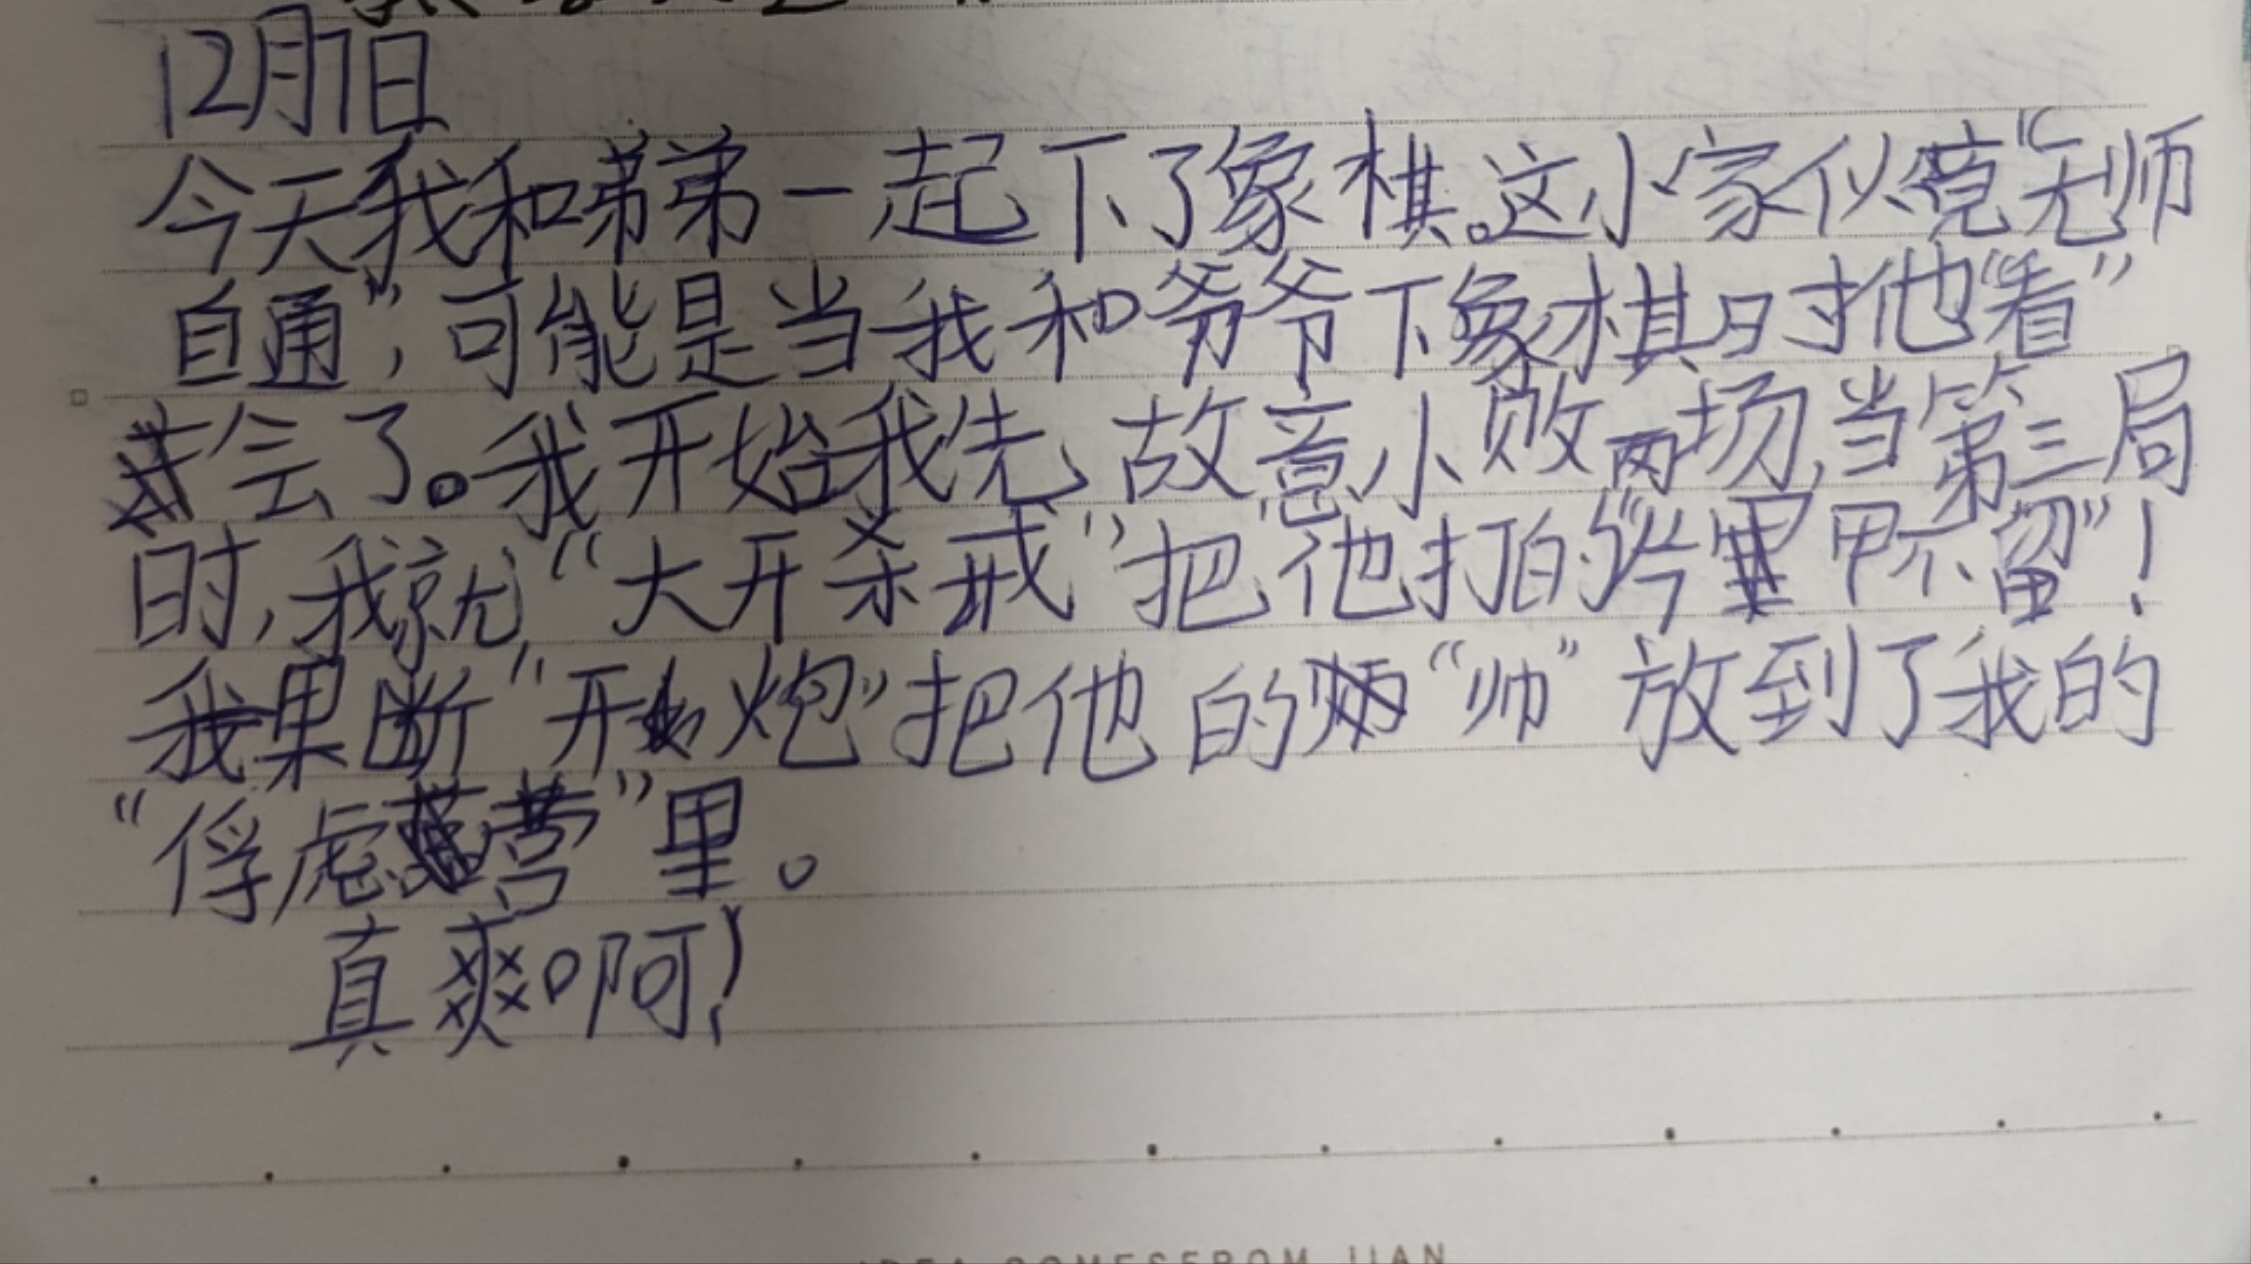 12月7日
今天我和弟弟一起下了象棋。这小家伙竟“无师
自通”，可能是当我和爷爷下象棋时他“看”
会了。我开始我先故意小败两场，当第三局
时，我就“大开杀戒”把他打的“片甲不留”！
我果断“开炮”把他的“帅”放到了我的
“俘虏营”里。
真爽啊！